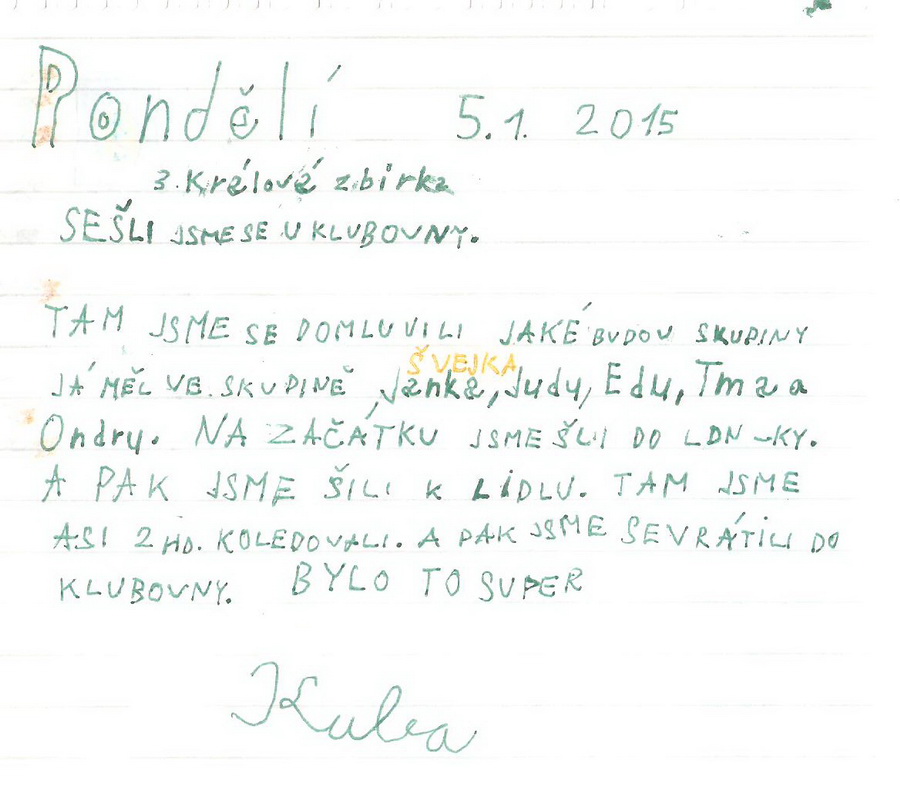 Pondělí 5.1. 2015
3. Králové zbirka
SEŠLI JSMESE U KLUBOVNY.
TAM JSME SE DOMLUVILI JAKÉ BUDOU SKUPINY
ŠVEJKA
JÁ MĚL VE. SKUPINĚ, Janka, Judy, Edu, Tma a
Ondry. NA ZAČÁTKU JSME ŠLI DO LDN -KY.
A PAK JSME ŠILI K LÍDLU. TAM JSME
ASI 2 HD. KOLEDOVALI. A PAK JSME SEVRÁTILI DO
KLUBOVNY. BYLO TO SUPER
Kuba